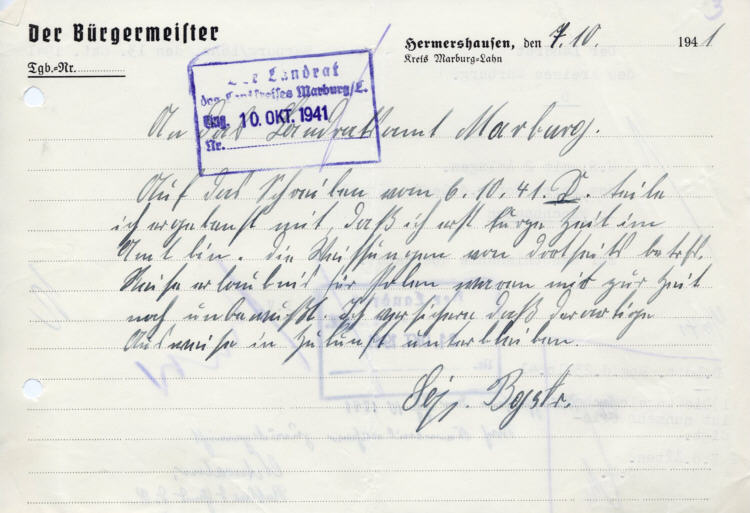 Der Bürgermeister
Tgb.-Nr.
Hermershausen, den 7.10. 1941
Kreis Marburg-Lahn
Der Landrat
des Landkreises Marburg/L.
Eing. 10. OKT. 1941
Nr.
An das Landratsamt Marburg.
Auf das Schreiben vom 6.10.41. I. teile
ich ergebenst mit, daß ich erst kurze Zeit im
Amt bin. Die Weisungen von dortseits betrfs.
Reiseerlaubnis für Polen waren mir zur Zeit
noch unbewußt. Ich versichere daß derartige
Ausweise in Zukunft unterbleiben.
Bgstr.